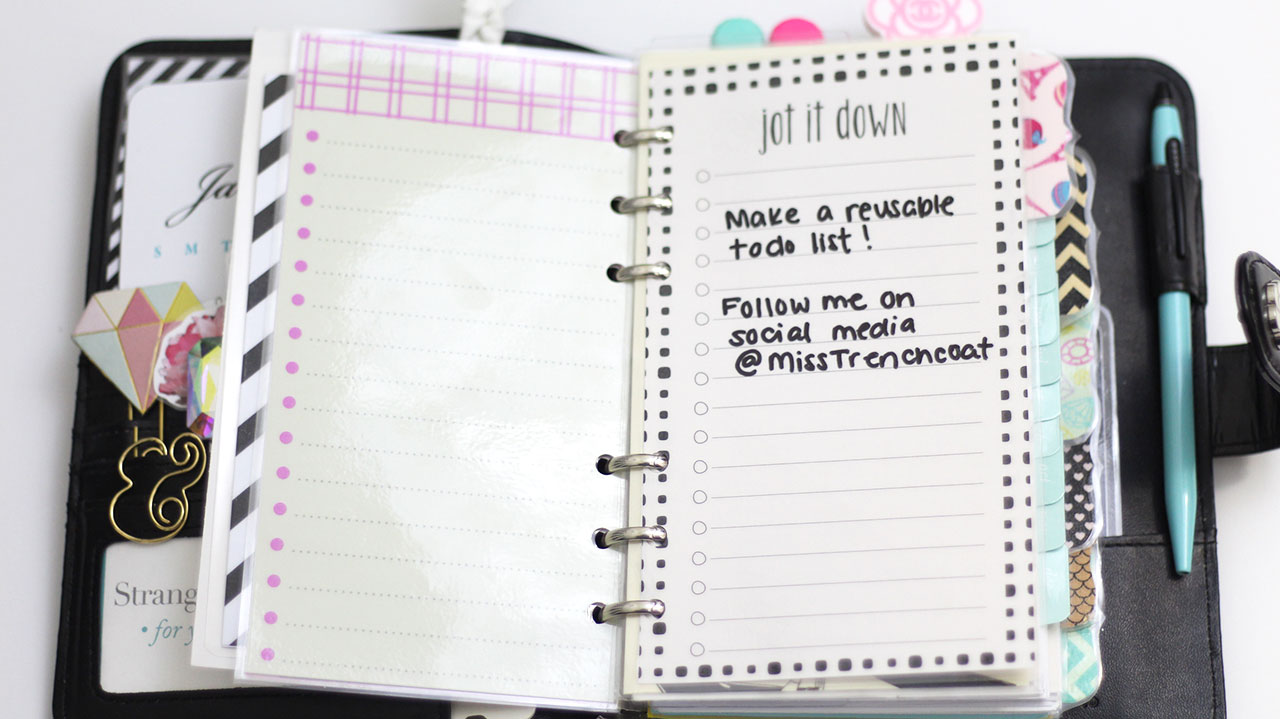 Ja
S M T
Strang
• for y
jot it down
Make a reusable
todo list!
Follow me on
social media
@MissTrenchcoat
&